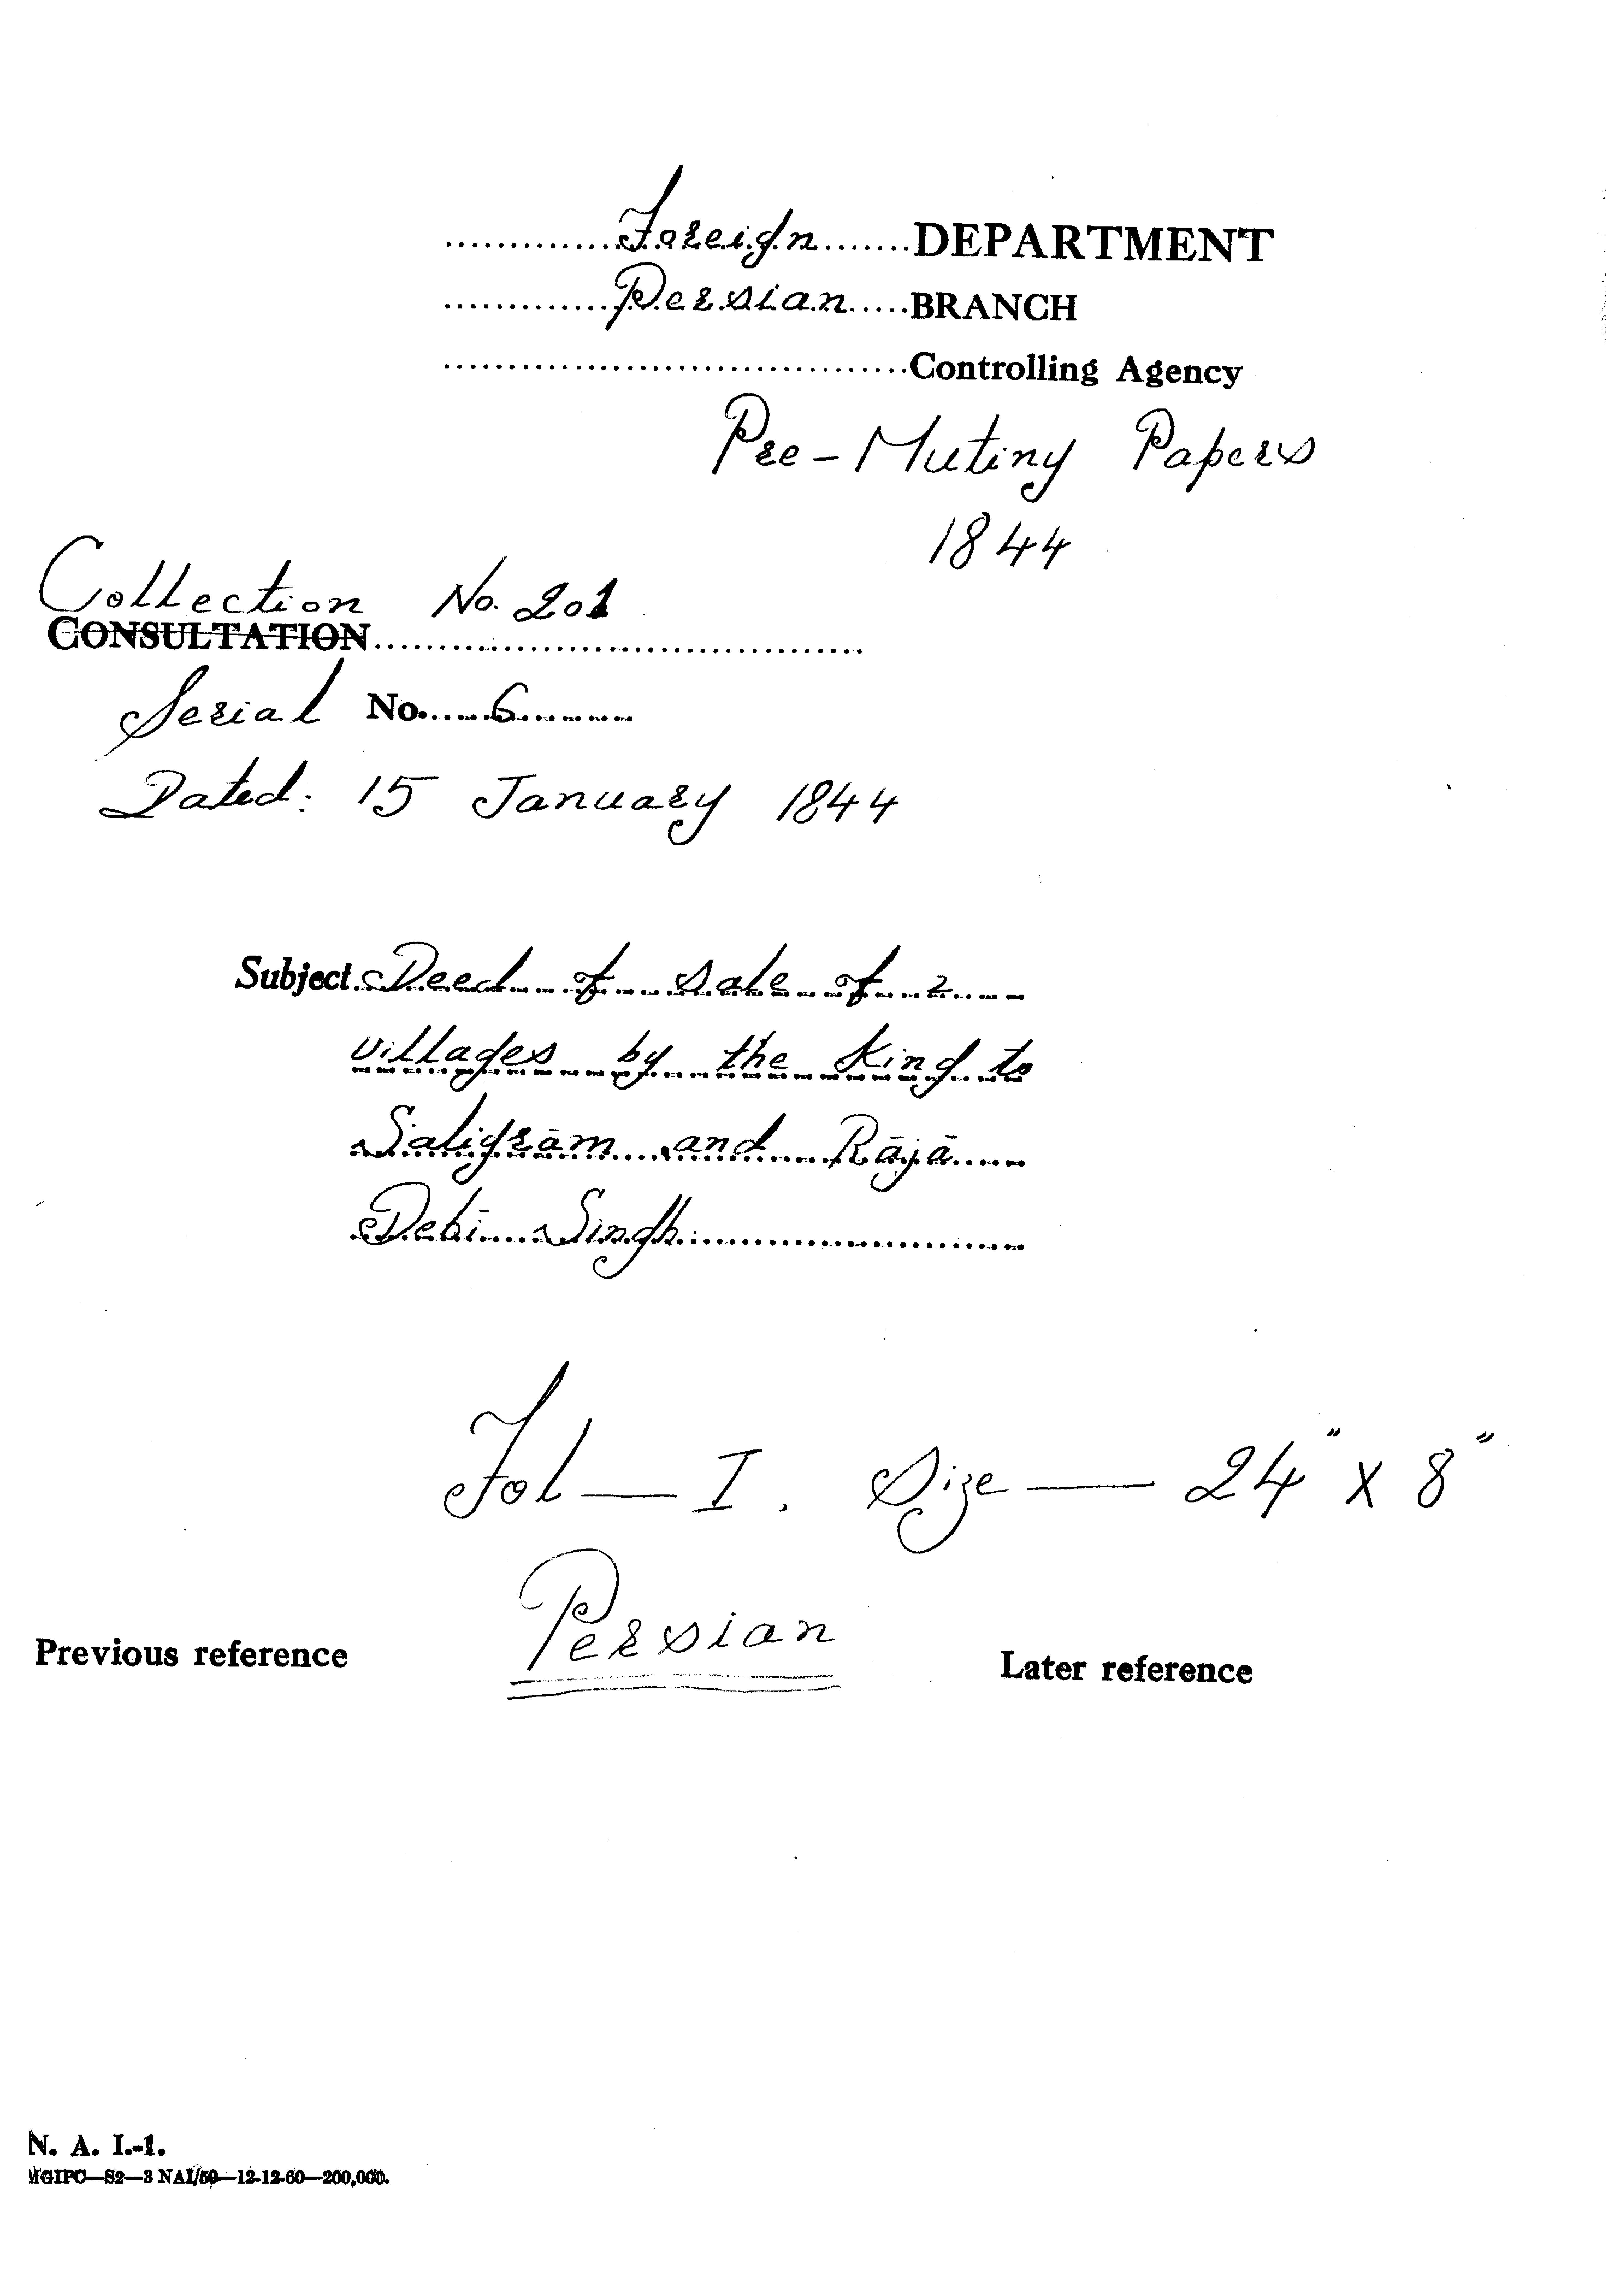 Foreign DEPARTMENT
Persian BRANCH
Controlling Agency
Pre-Mutiny Papers
1844
Collection No. 201
CONSULTATION
Serial No. 6
Dated: 15 January 1844
Subject Deed of sale of 2
villages by the King to
Saligrām and Rājā
Debī Singh
Fol — I. Size — 24" x 8"
Persian
Previous reference Later reference
N. A. I.-1.
MGIPC—S2—3 NAI/59—12-12-60—200,000.